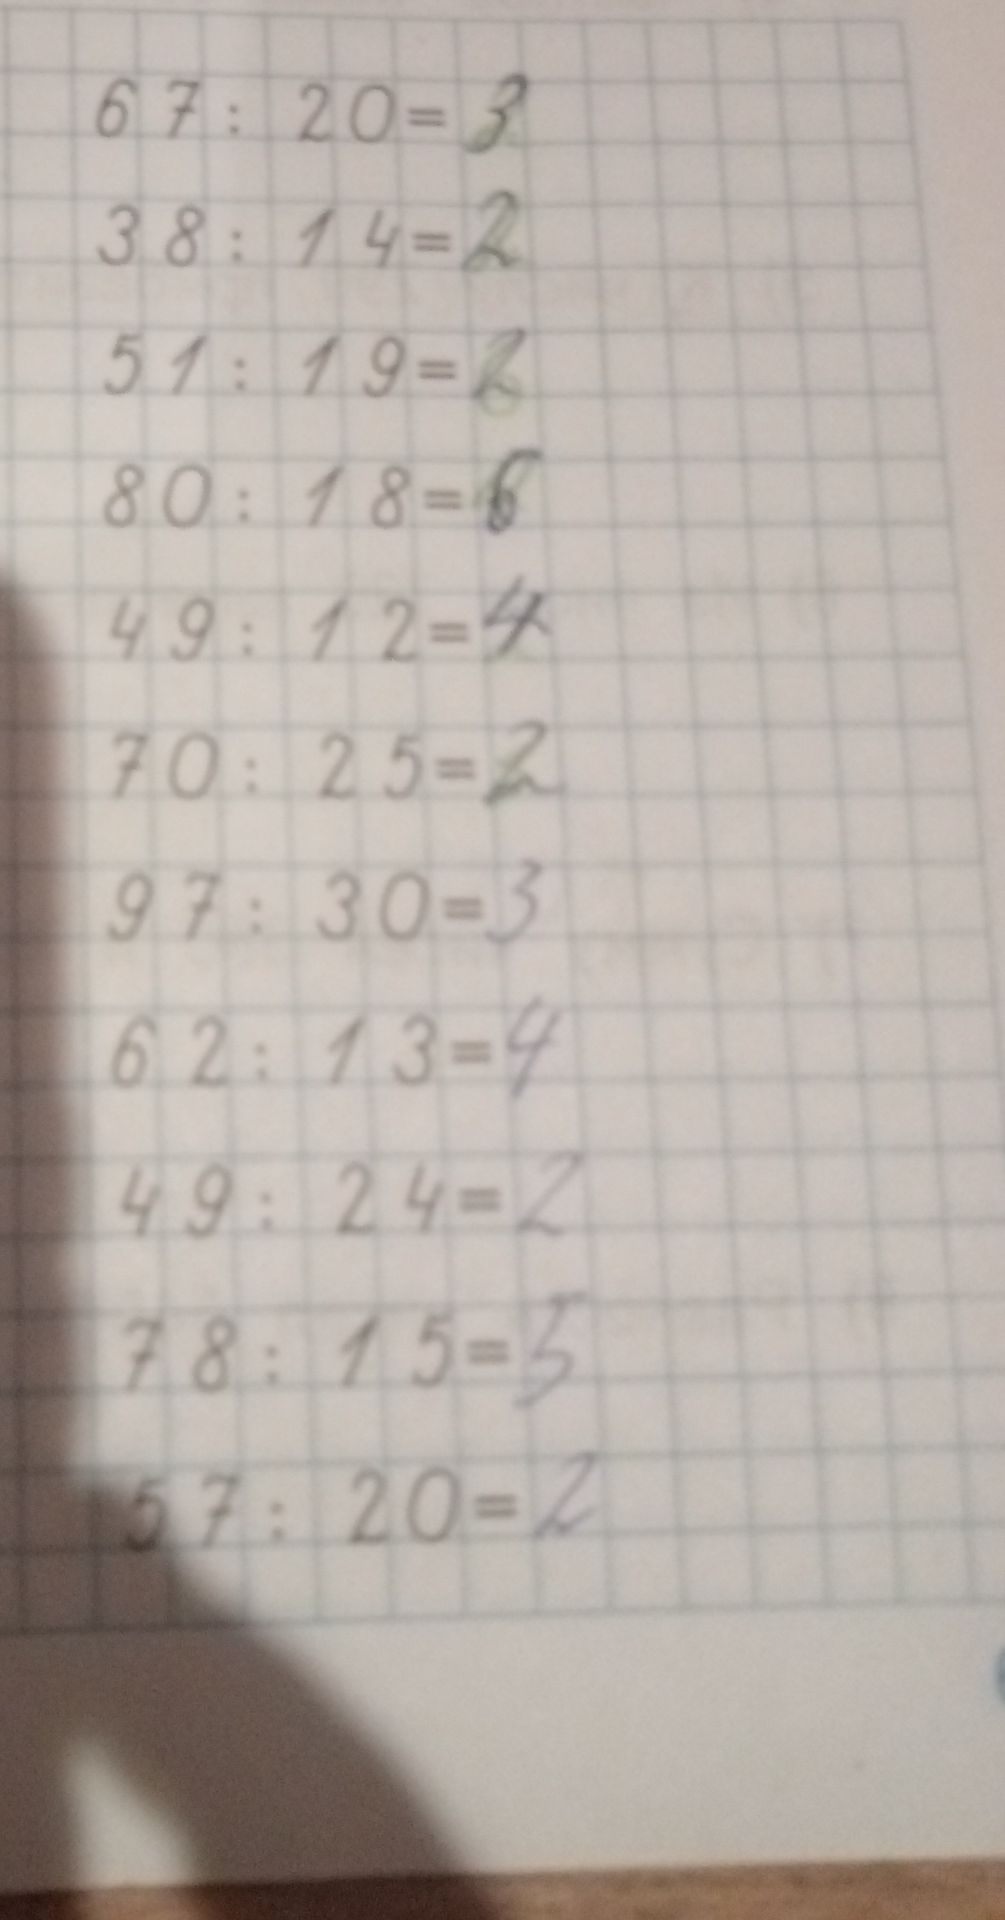 67 : 20 = 3
38 : 14 = 2
51 : 19 = 2
80 : 18 = 6
49 : 12 = 4
70 : 25 = 2
97 : 30 = 3
62 : 13 = 4
49 : 24 = 2
78 : 15 = 5
57 : 20 = 2